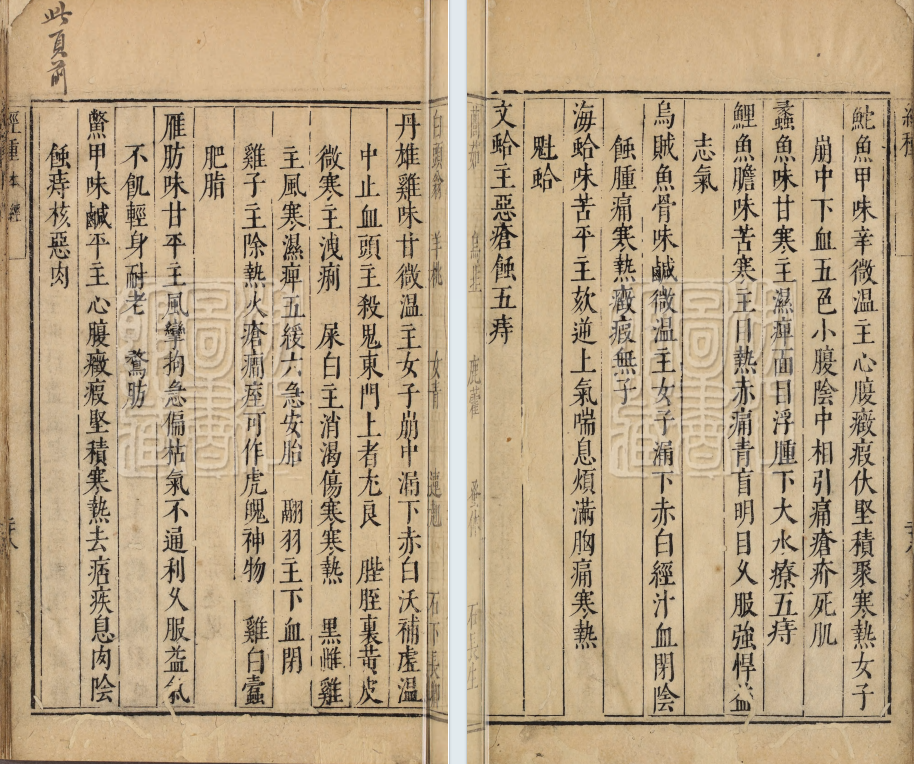 鮀魚甲味辛微温主心腹癥瘕伏堅積聚寒熱女子
崩中下血五色小腹陰中相引痛瘡疥死肌
蠡魚味甘寒主濕痺面目浮腫下大水療五痔
鯉魚膽味苦寒主目熱赤痛青盲明目久服強悍益
志氣
烏賊魚骨味鹹微温主女子漏下赤白經汁血閉陰
蝕腫痛寒熱癥瘕無子
海蛤味苦平主欬逆上氣喘息煩滿胸痛寒熱
魁蛤
文蛤主惡瘡蝕五痔
丹雄雞味甘微温主女子崩中漏下赤白沃補虛温
中止血頭主殺鬼東門上者尤良 膍胵裏黃皮
微寒主洩痢 屎白主消渴傷寒寒熱 黑雌雞
主風寒濕痺五緩六急安胎 翮羽主下血閉
雞子主除熱火瘡癇痙可作虎魄神物 雞白蠹
肥脂
雁肪味甘平主風攣拘急偏枯氣不通利久服益氣
不飢輕身耐老 鶩肪
鱉甲味鹹平主心腹癥瘕堅積寒熱去痞疾息肉陰
蝕痔核惡肉
經種 本經
此頁前